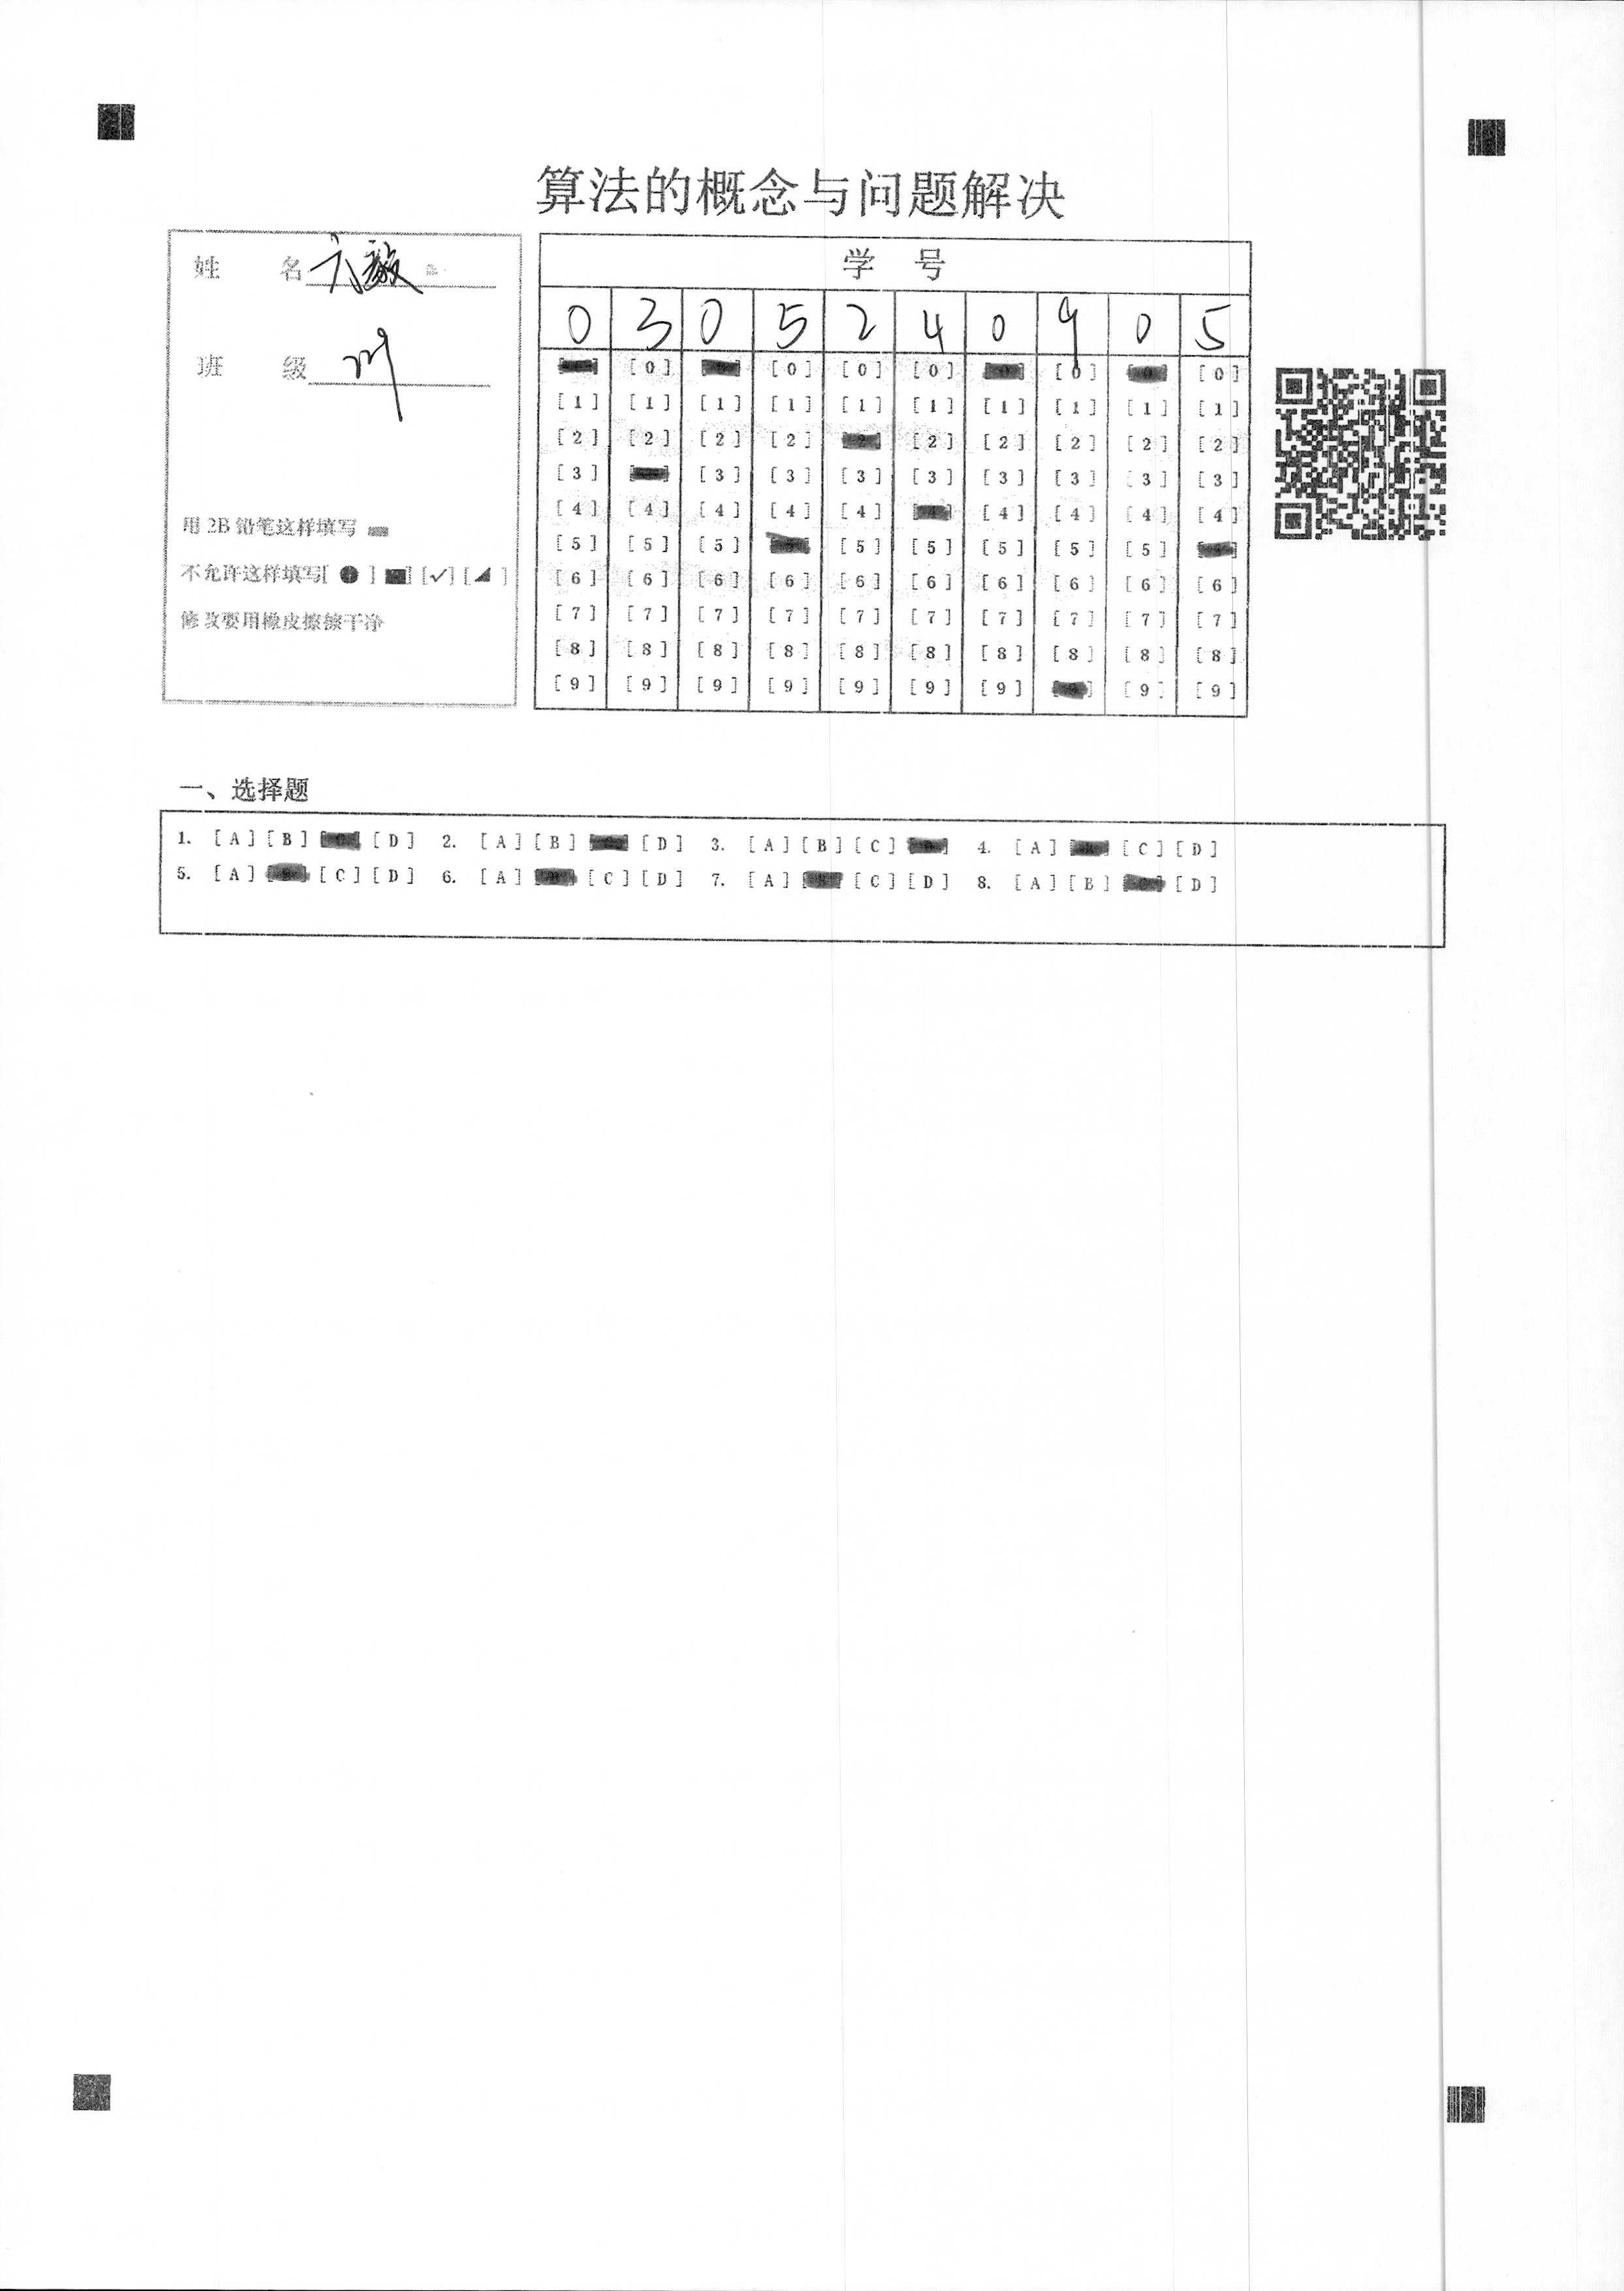 算法的概念与问题解决
姓 名
班 级
用 2B 铅笔这样填写
不允许这样填写[ ● ] [■] [✓] [◢ ]
修改要用橡皮擦擦干净
学 号
0 3 0 5 2 4 0 9 0 5
[0] [0] [0] [0] [0] [0] [0]
[1] [1] [1] [1] [1] [1] [1] [1] [1] [1]
[2] [2] [2] [2] [2] [2] [2] [2] [2] [2]
[3] [3] [3] [3] [3] [3] [3] [3] [3]
[4] [4] [4] [4] [4] [4] [4] [4] [4] [4]
[5] [5] [5] [5] [5] [5] [5] [5]
[6] [6] [6] [6] [6] [6] [6] [6] [6] [6]
[7] [7] [7] [7] [7] [7] [7] [7] [7] [7]
[8] [8] [8] [8] [8] [8] [8] [8] [8] [8]
[9] [9] [9] [9] [9] [9] [9] [9] [9]
一、选择题
1. [A] [B] [D] 2. [A] [B] [D] 3. [A] [B] [C] 4. [A] [C] [D]
5. [A] [C] [D] 6. [A] [C] [D] 7. [A] [C] [D] 8. [A] [B] [D]